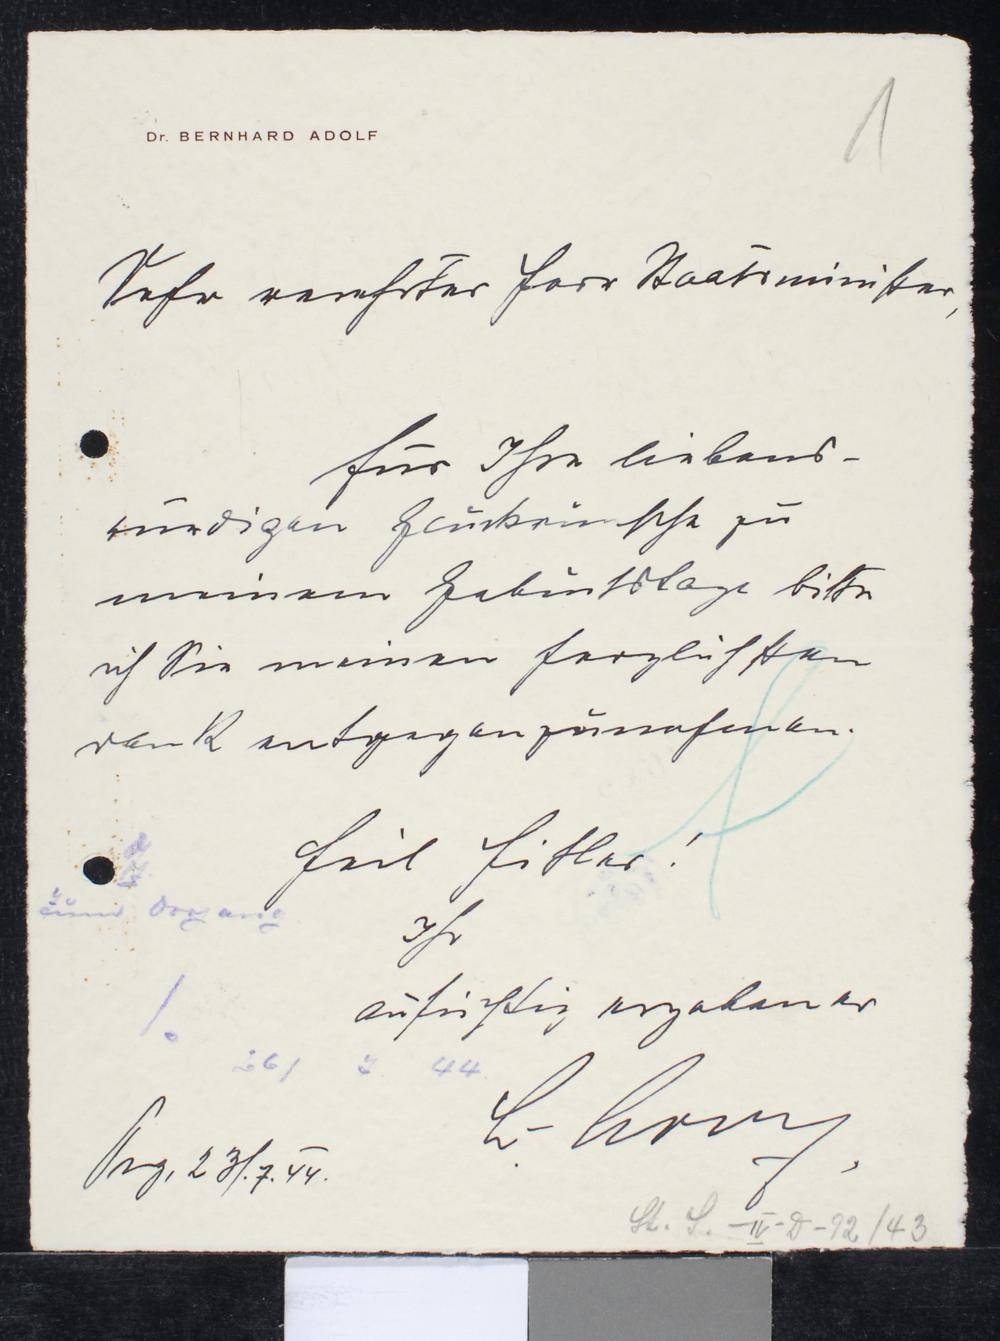 1
Dr. BERNHARD ADOLF
Sehr verehrter Herr Staatsminister,
für Ihre liebens-
würdigen Glückwünsche zu
meinem Geburtstage bitte
ich Sie meinen herzlichsten
Dank entgegenzunehmen.
Heil Hitler!
zum Vorgang
Ihr
aufrichtig ergebener
26/ 7 44
Prg, 23/.7.44.
St. S. -IV-D-92/43